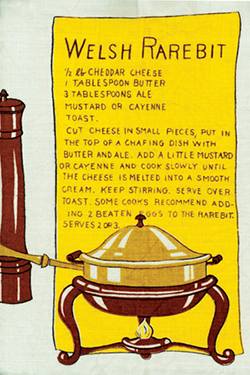 WELSH RAREBIT
½ lb CHEDDAR CHEESE
1 TABLESPOON BUTTER
3 TABLESPOONS ALE
MUSTARD OR CAYENNE
TOAST.
CUT CHEESE IN SMALL PIECES, PUT IN
THE TOP OF A CHAFING DISH WITH
BUTTER AND ALE. ADD A LITTLE MUSTARD
OR CAYENNE AND COOK SLOWLY UNTIL
THE CHEESE IS MELTED INTO A SMOOTH
CREAM. KEEP STIRRING. SERVE OVER
TOAST. SOME COOKS RECOMMEND ADD-
ING 2 BEATEN EGGS TO THE RAREBIT.
SERVES 2 OR 3.